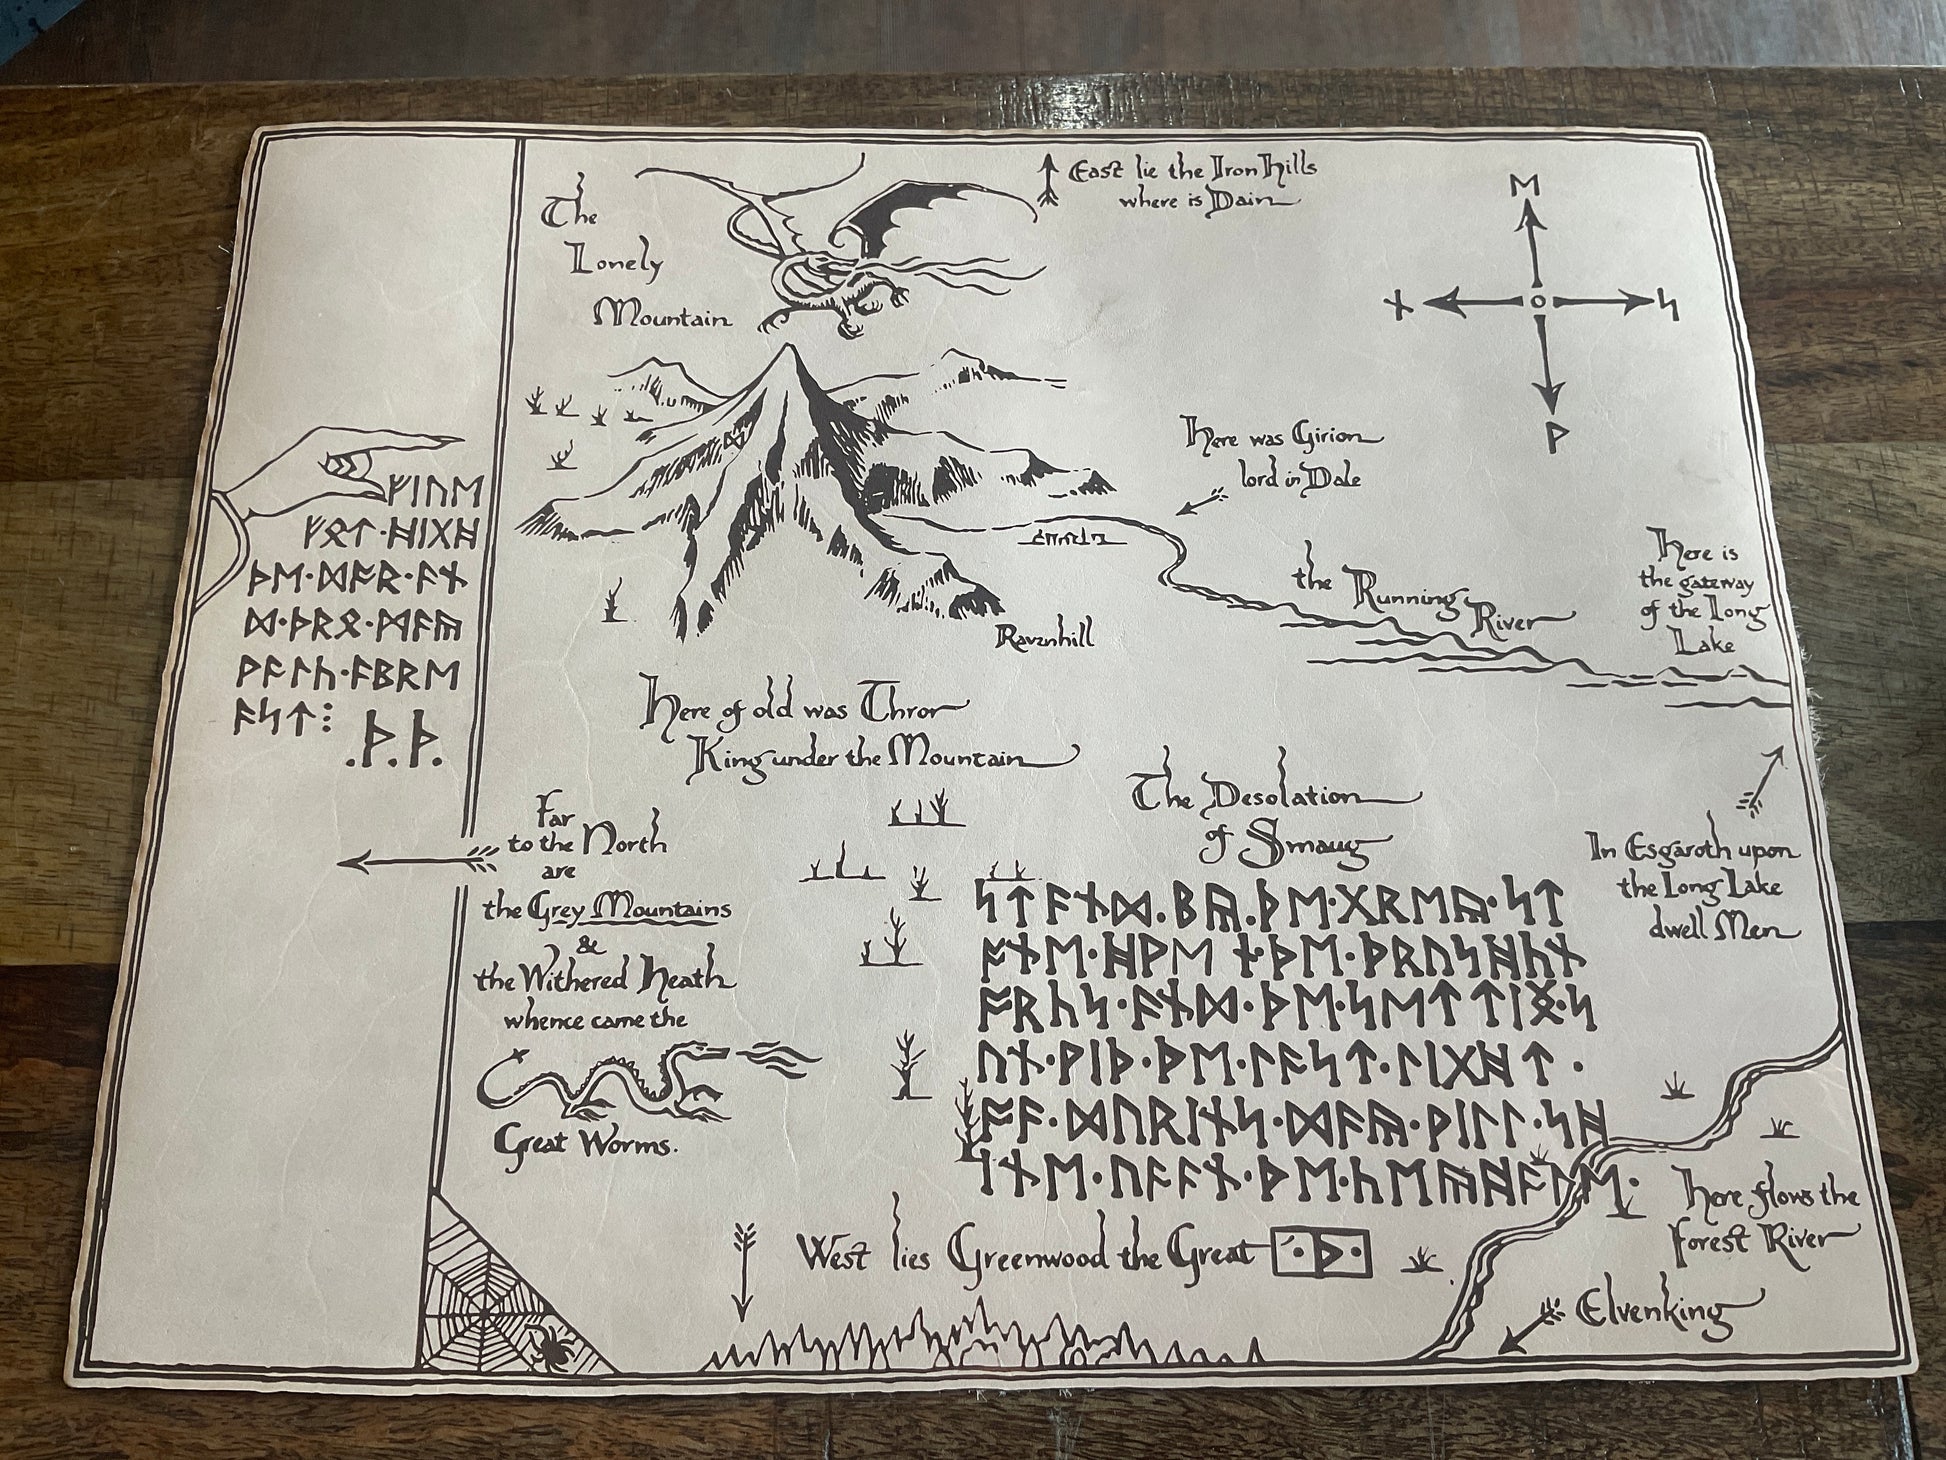 The
Lonely
Mountain
East lie the Iron Hills
where is Dain
ᛖ
ᚾ
ᛋ
ᚹ
Here was Girion
lord in Dale
ᚠᛁᚢᛖ
ᚠᛟᛏ·ᚻᛁᚷᚻ
ᚦᛖ·ᛞᚩᚱ·ᚪᚾ
ᛞ·ᚦᚱᛟ·ᛗᚪᚣ
ᚹᚪᛚᚳ·ᚪᛒᚱᛖ
ᚪᛋᛏ⁝
.ᚦ.ᚦ.
the Running
River
Here is
the gateway
of the Long
Lake
Ravenhill
Here of old was Thror
King under the Mountain
The Desolation
of Smaug
Far
to the North
are
the Grey Mountains
&
the Withered Heath
whence came the
Great Worms.
In Esgaroth upon
the Long Lake
dwell Men
ᛋᛏᚪᚾᛞ·ᛒᚣ·ᚦᛖ·ᚷᚱᛖᚣ·ᛋᛏ
ᚩᚾᛖ·ᚻᚹᛖᚾ·ᚦᛖ·ᚦᚱᚢᛋᚻᚳᚾ
ᚩᚱᚳᛋ·ᚪᚾᛞ·ᚦᛖ·ᛋᛖᛏᛏᛁᛝ·ᛋ
ᚢᚾ·ᚹᛁᚦ·ᚦᛖ·ᛚᚪᛋᛏ·ᛚᛁᚷᚻᛏ·
ᚩᚪ·ᛞᚢᚱᛁᚾᛋ·ᛞᚪᚣ·ᚹᛁᛚᛚ·ᛋᚻ
ᛁᚾᛖ·ᚢᚪᚪᚾ·ᚦᛖ·ᚳᛖᚣᚻᚩᛚᛖ·
Here flows the
Forest River
West lies Greenwood the Great ·ᚦ·
Elvenking